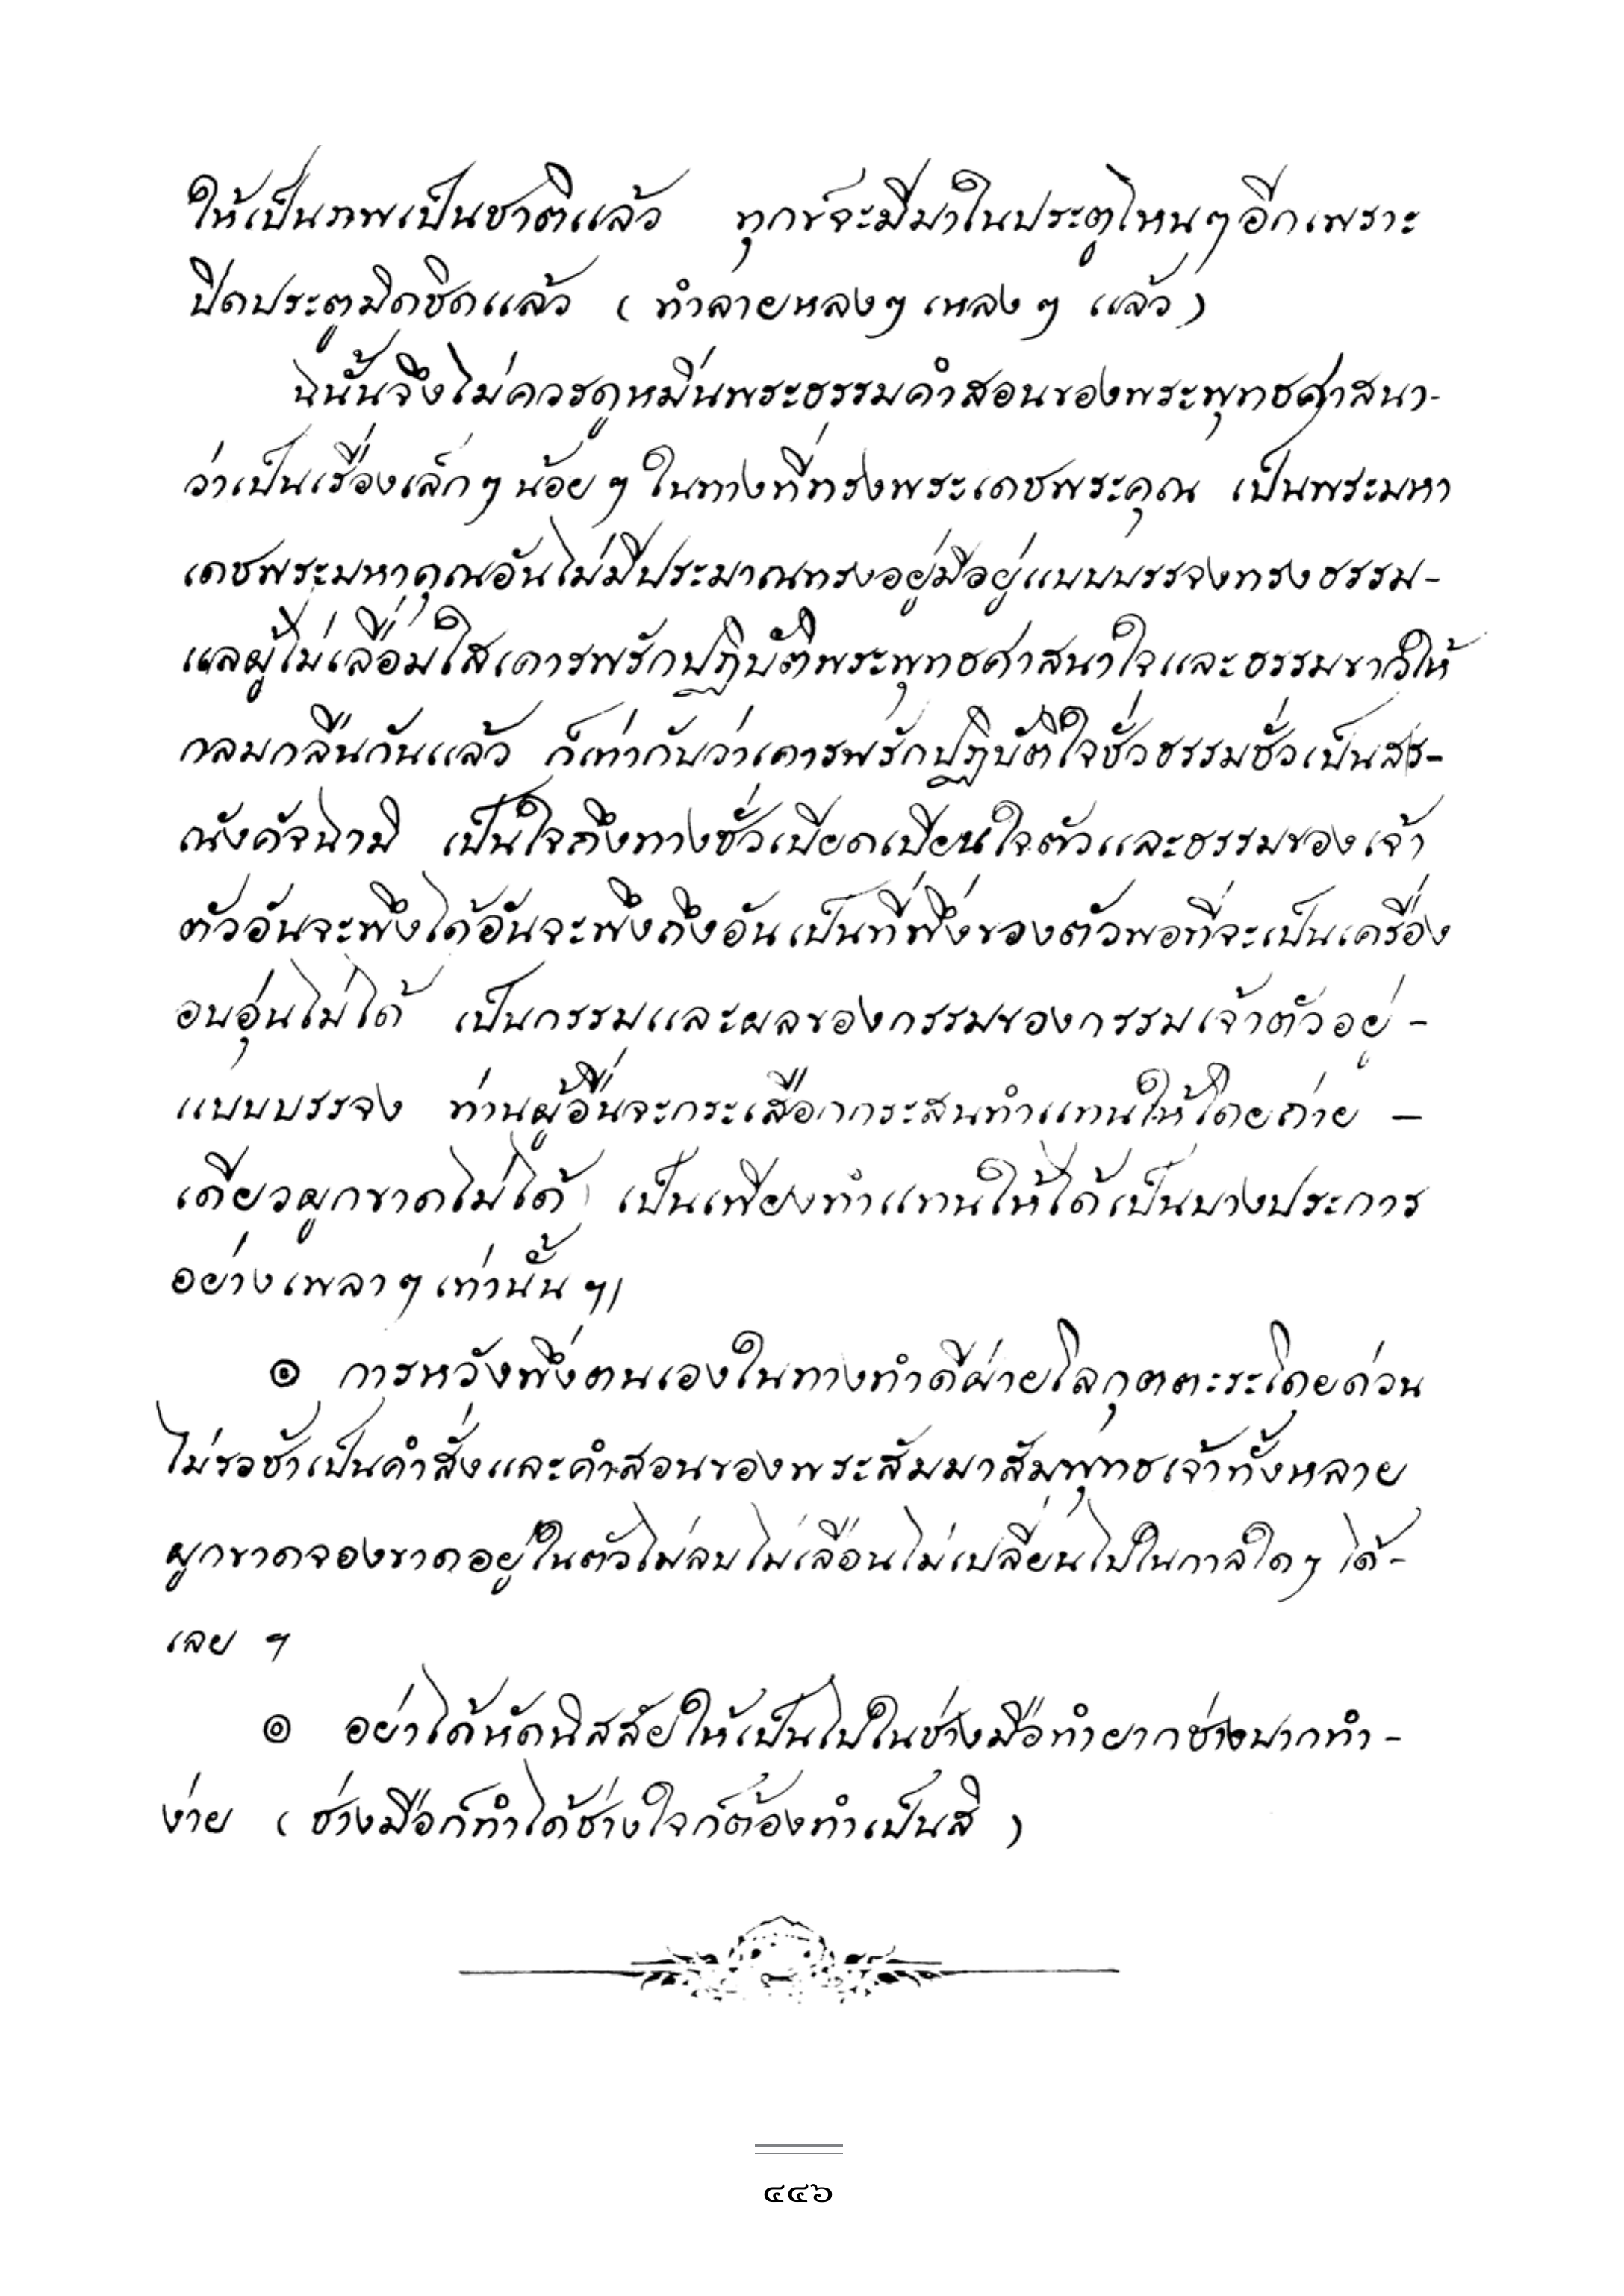 ให้เป็นภพเป็นชาติแล้ว ทุกข์จะมีมาในประตูไหนๆอีกเพราะ
ปิดประตูมิดชิดแล้ว (ทำลายหลงๆ เหลงๆ แล้ว)
ฉนั้นจึงไม่ควรดูหมิ่นพระธรรมคำสอนของพระพุทธศาสนา-
ว่าเป็นเรื่องเล็กๆ น้อยๆ ในทางที่ทรงพระเดชพระคุณ เป็นพระมหา
เดชพระมหาคุณอันไม่มีประมาณทรงอยู่มีอยู่แบบบรรจงทรงธรรม-
แลผู้ไม่เลื่อมใสเคารพรักปฏิบัติพระพุทธศาสนาใจและธรรมขาวให้
กลมกลืนกันแล้ว ก็เท่ากับว่าเคารพรักปฏิบัติใจชั่วธรรมชั่วเป็นสร-
ณังคัจฉามิ เป็นใจถึงทางชั่วเบียดเบียนใจตัวและธรรมของเจ้า
ตัวอันจะพึงได้อันจะพึงถึงอันเป็นที่พึ่งของตัวพอที่จะเป็นเครื่อง
อบอุ่นไม่ได้ เป็นกรรมและผลของกรรมของกรรมเจ้าตัวอยู่-
แบบบรรจง ท่านผู้อื่นจะกระเสือกกระสนทำแทนให้โดยถ่าย-
เดียวผูกขาดไม่ได้ เป็นเพียงทำแทนให้ได้เป็นบางประการ
อย่างเพลาๆ เท่านั้น ฯ|
๏ การหวังพึ่งตนเองในทางทำดีฝ่ายโลกุตตะระโดยด่วน
ไม่รอช้าเป็นคำสั่งและคำสอนของพระสัมมาสัมพุทธเจ้าทั้งหลาย
ผูกขาดจองขาดอยู่ในตัวไม่ลบไม่เลือนไม่เปลี่ยนไปในกาลใดๆ ได้-
เลย ฯ
๏ อย่าได้หัดนิสสัยให้เป็นไปในช่างมือทำยากช่างปากทำ-
ง่าย (ช่างมือก็ทำได้ช่างใจก็ต้องทำเป็นสิ)
๔๔๖